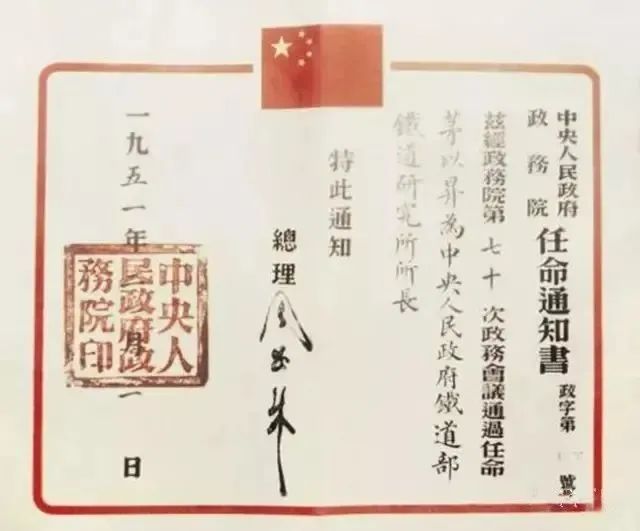 中央人民政府
政務院
任命通知書
政字第 號
茲經政務院第七十次政務會議通過任命
茅以昇為中央人民政府鐵道部
鐵道研究所所長
特此通知
總理 周恩來
一九五一年 月一日
中央人
民政府政
務院印